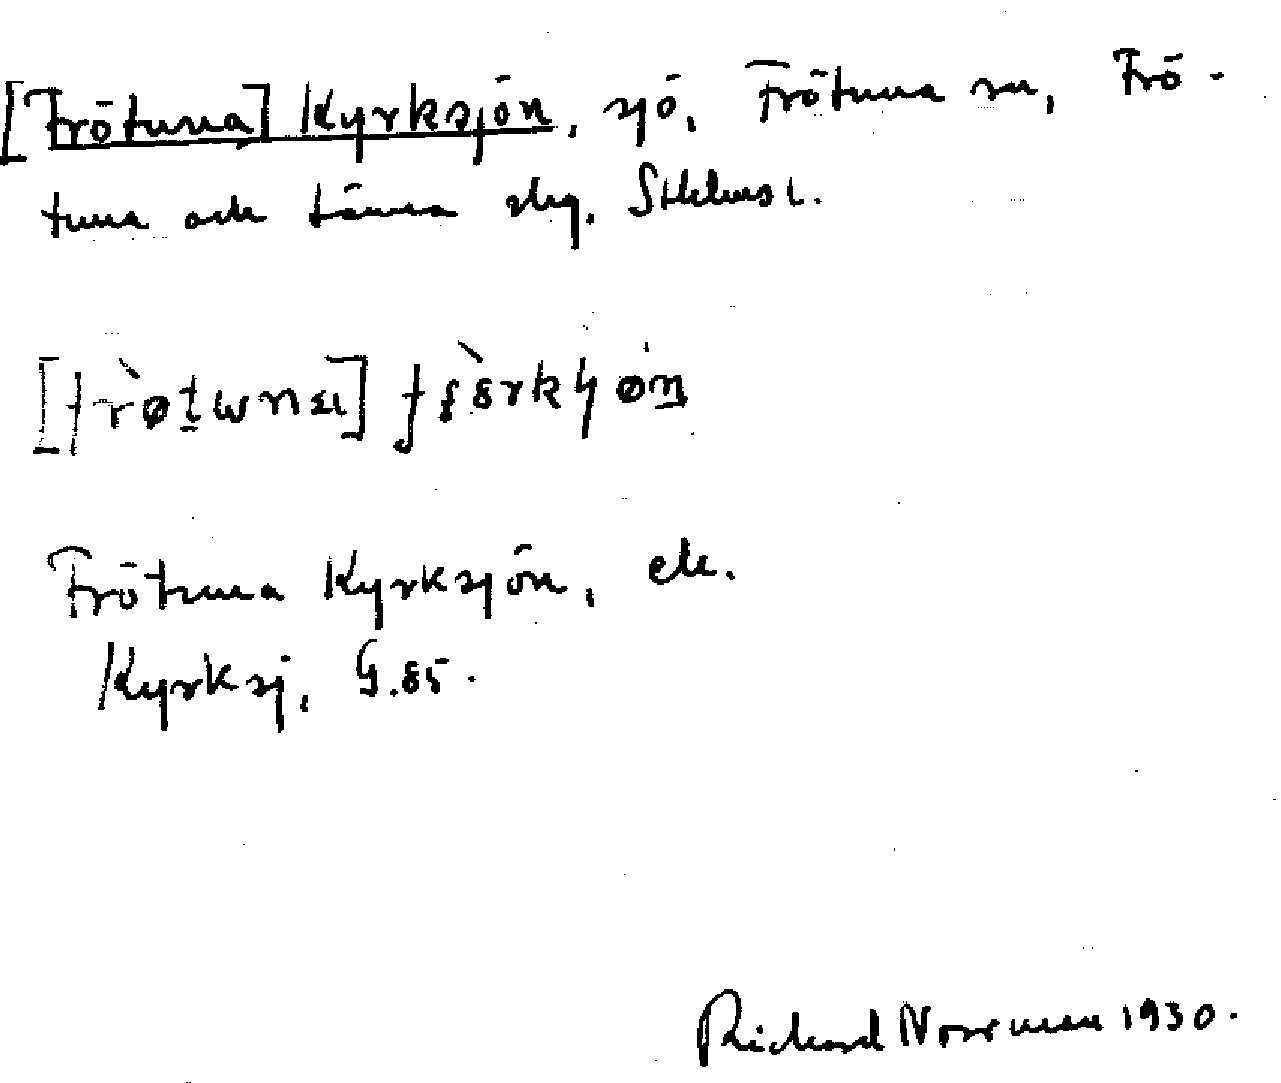 [Frötuna] Kyrksjön, sjö, Frötuna sn, Frö-
tuna och Länna skg. Sthlms l.
Frötuna Kyrksjön, ek.
Kyrksj, G.85.
Richard Norrman 1930.